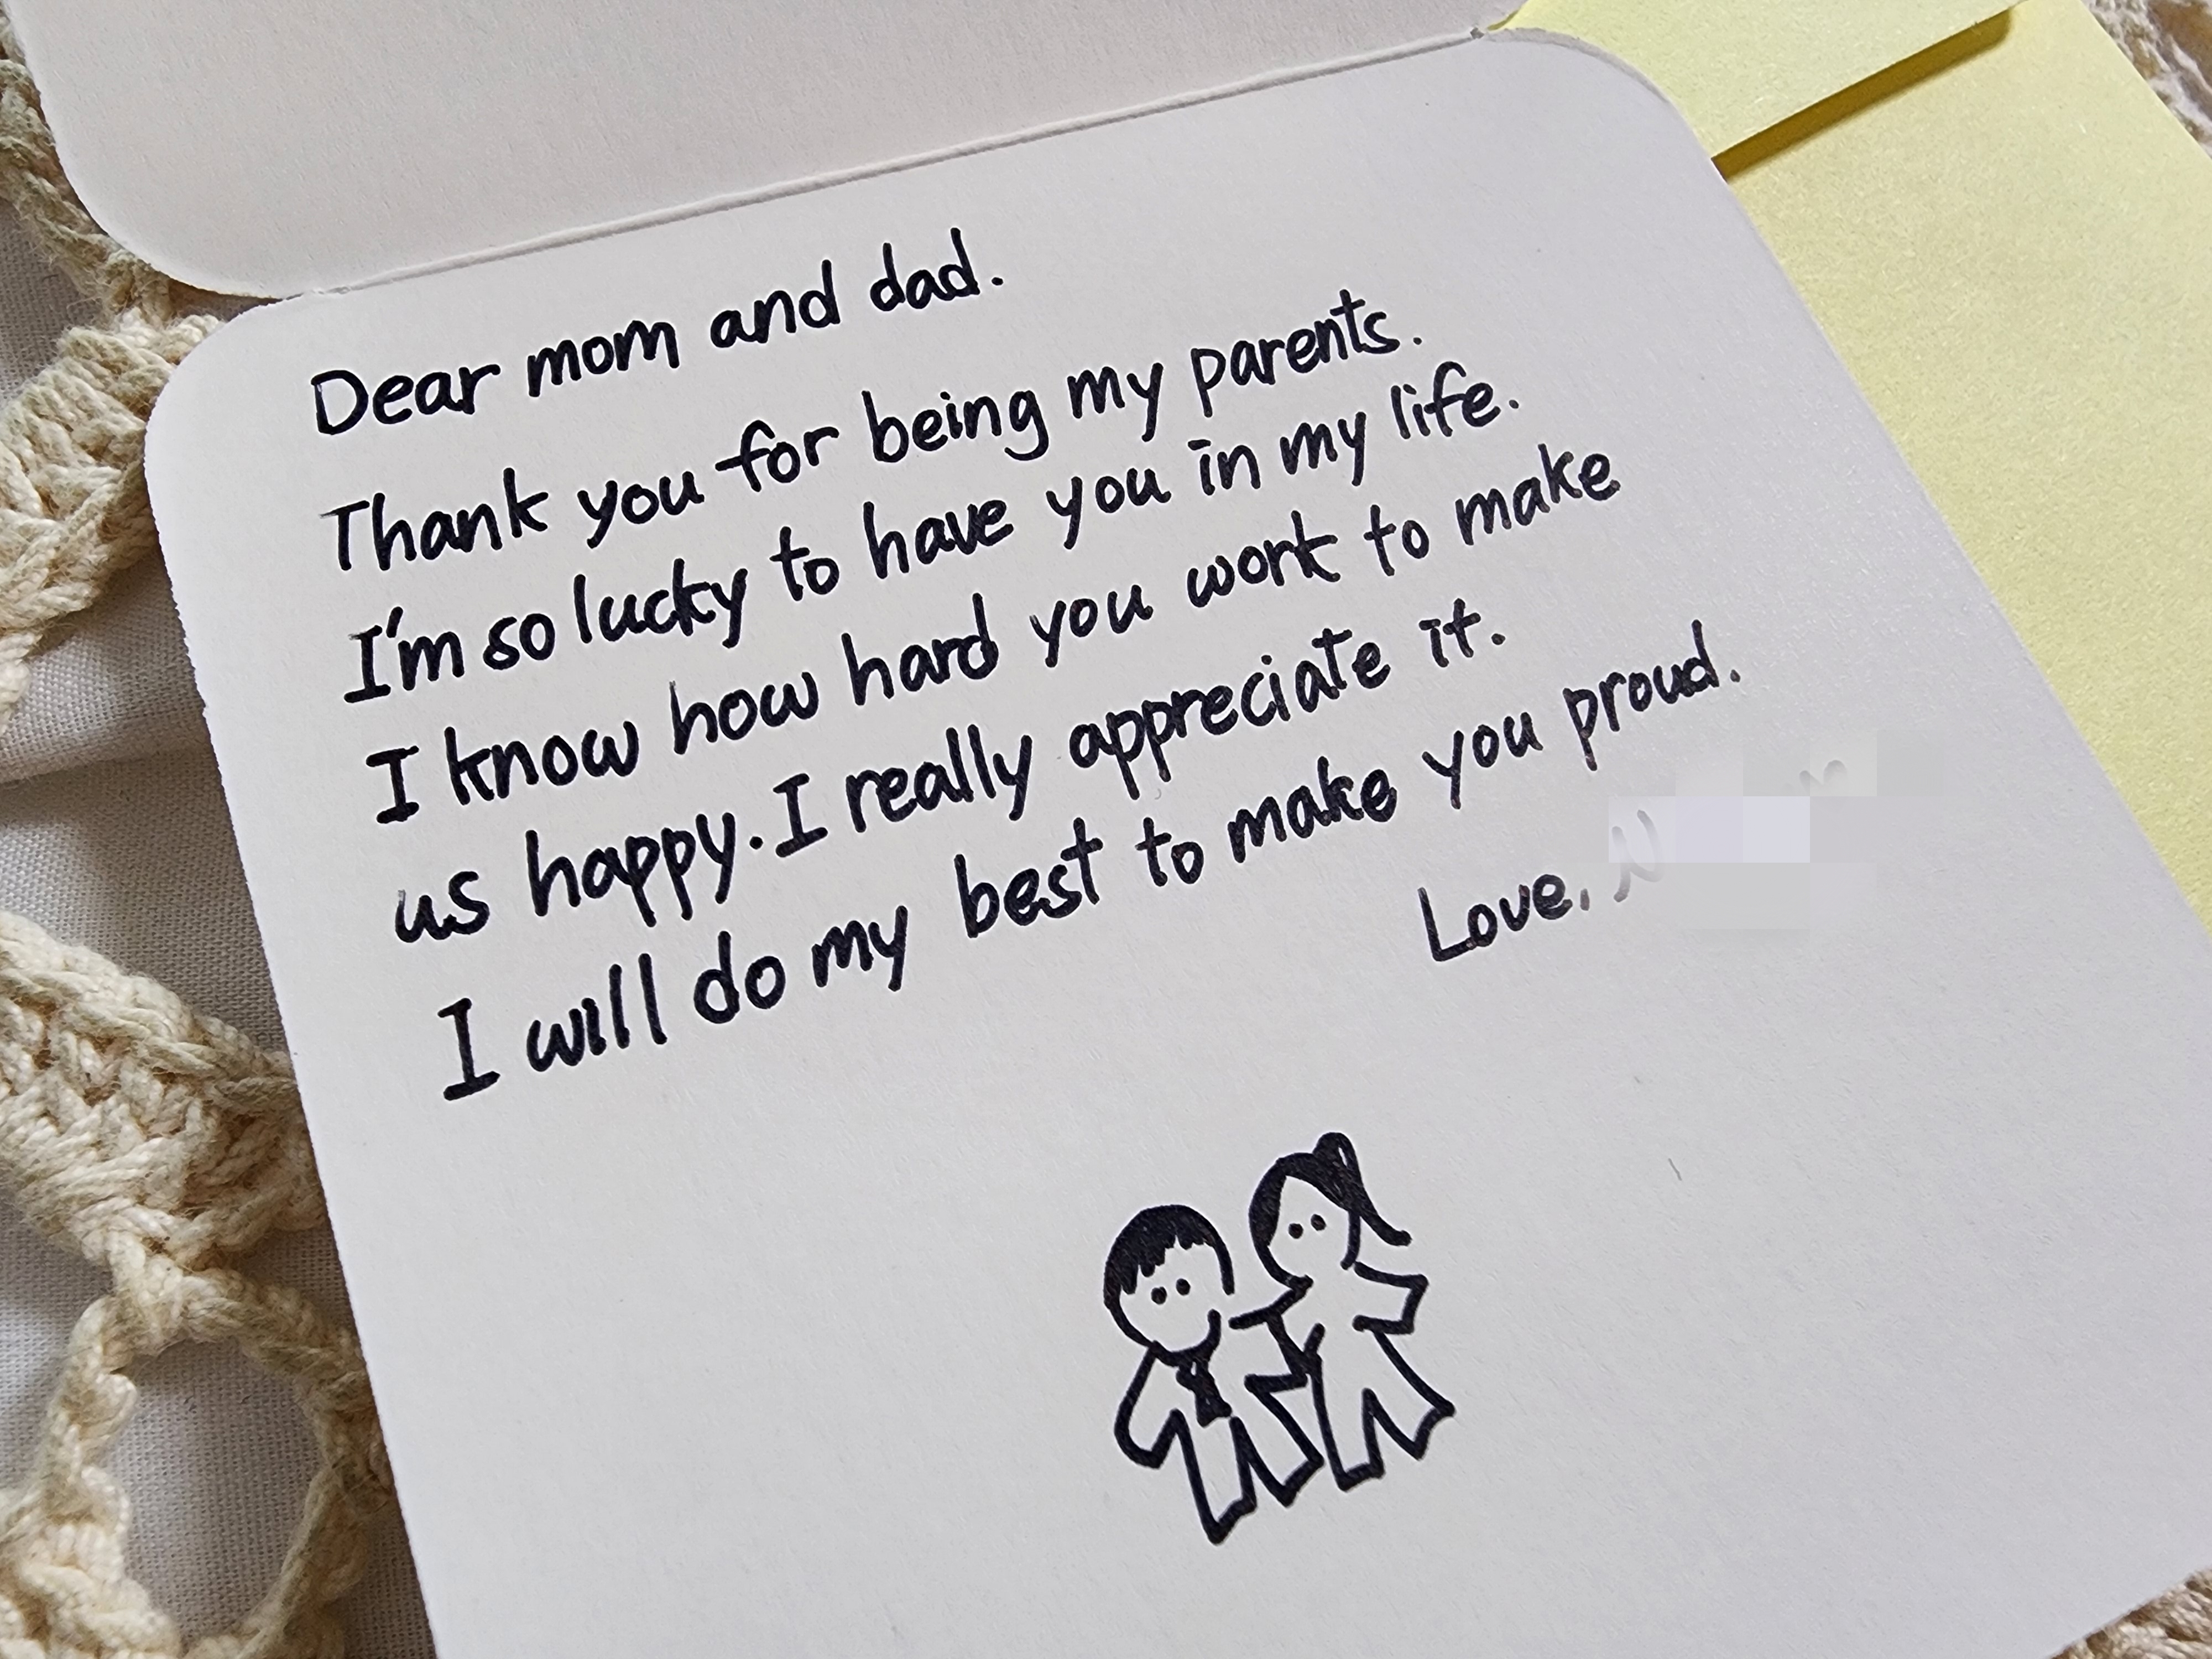 Dear mom and dad.
Thank you for being my parents.
I'm so lucky to have you in my life.
I know how hard you work to make
us happy. I really appreciate it.
I will do my best to make you proud.
Love,